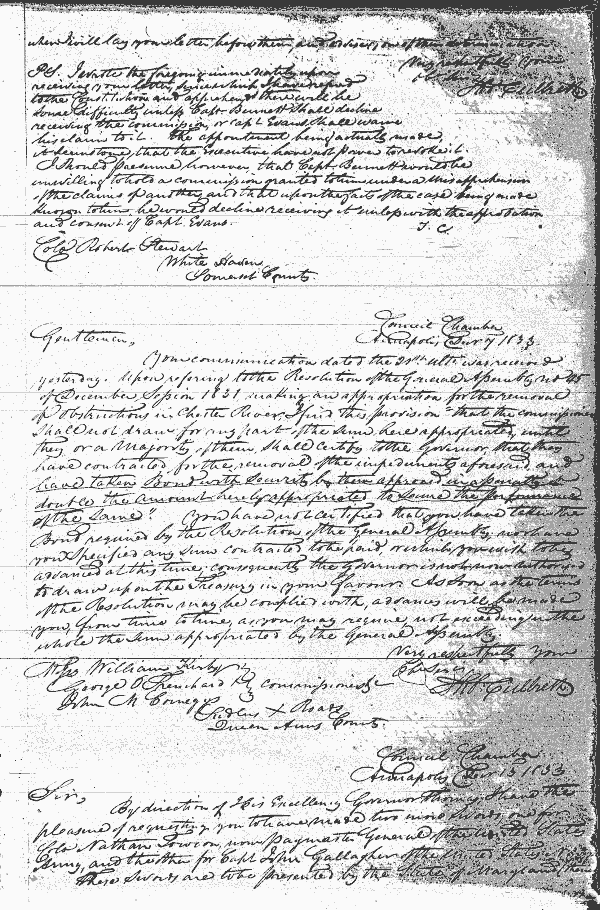 when I will lay your letter before them, and advise you of their determination.
Very respectfully Your
Ob. Servt.
Ths. Culbreth
P.S. I wrote the foregoing immediately upon
receiving your letter, since which I have refered
to the Constitution and apprehend there will be
some difficulty unless Capt. Burnett shall decline
receiving the commission, or Capt. Evans shall waive
his claims to it. The appointment being actually made,
it seems to me, that the Executive have not power to revoke it.
I should presume however, that Capt. Burnett would be
unwilling to hold a commission granted to him under a misapprehension
of the claims of another, and that upon the facts of the case being made
known to him, he would decline receiving it unless with the approbation
and consent of Capt. Evans.
T. C.
Colo. Robert Stewart
White Haven
Somerset County.
Council Chamber
Annapolis Jany 7 1833.
Gentlemen,
Your communication dated the 29th ulto. was received
yesterday. Upon refering to the Resolution of the General Assembly No 45
of December Session 1831, making an appropriation for the removal
of obstructions in Chester River, I find this provision "that the commissioners
shall not draw for any part of the sum here appropriated, until
they or a Majority of them, shall certify to the Governor, that they
have contracted, for the removal of the impediments aforesaid, and
have taken Bond with Security by them approved in a penalty of
double the amount hereby appropriated to secure the performance
of the same". You have not certified that you have taken the
Bond required by the Resolution of the General Assembly, nor have
you specified any sum contracted to be paid, or which you wish to be
advanced at this time; consequently the Governor is not now authorised
to draw upon the Treasury in your favour. As soon as the terms
of the Resolution may be complied with, advances will be made
you, from time to time, as you may require, not exceeding in the
whole the sum appropriated by the General Assembly.
Very respectfully Your
Ob. Servt.
Ths. Culbreth
Messrs William Kirby
George O Trenchard
John M Corneggs
commissioners
Sudlers X Roads
Queen Anns County.
Council Chamber
Annapolis Jany 15 1833
Sir,
By direction of His Excellency Governor Thomas, I have the
pleasure of requesting you to have made two more Swords, one for
Colo Nathan Towson, now Paymaster General of the United States
Army, and the other for Capt. John Gallagher of the United States
These Swords are to be presented by the State of Maryland,